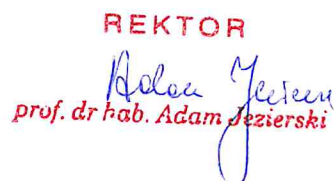 REKTOR
Adam Jezierski
prof. dr hab. Adam Jezierski